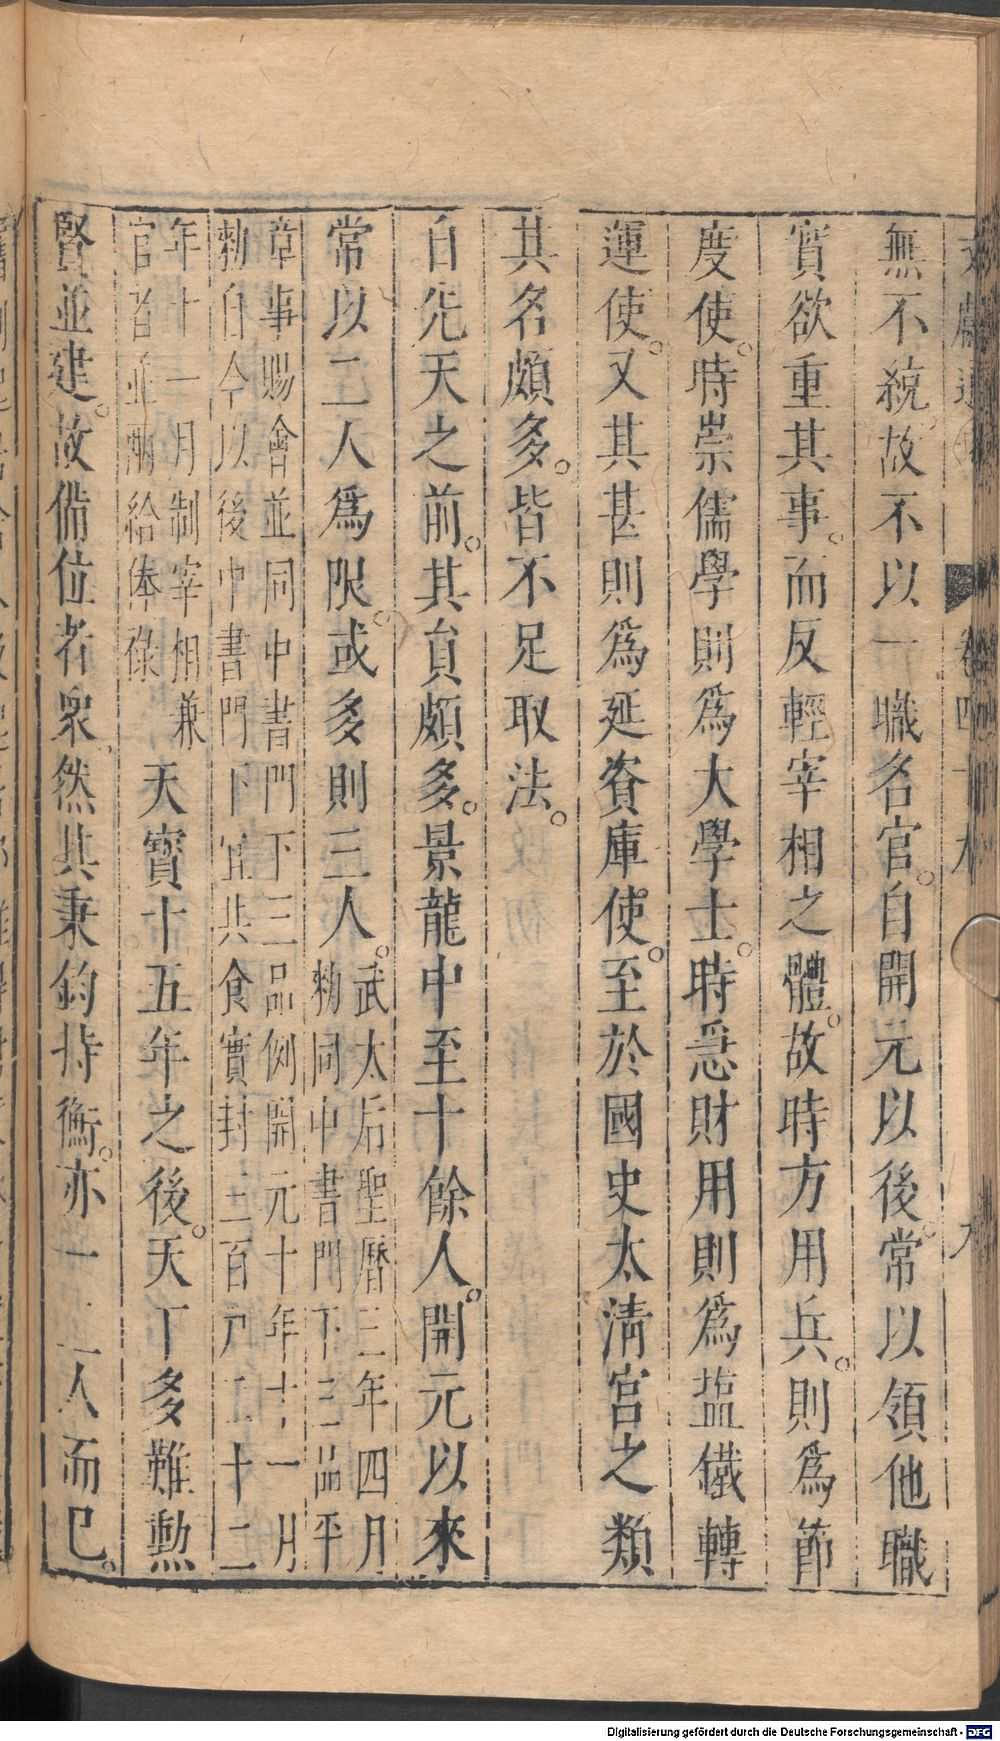 無不統故不以一職名官。自開元以後。常以領他職
實欲重其事。而反輕宰相之體。故時方用兵。則爲節
度使。時崇儒學則爲大學士。時急財用則爲塩鐵轉
運使。又其甚則爲延資庫使。至於國史太淸宮之類
其名頗多。皆不足取法。
自先天之前。其員頗多。景龍中至十餘人。開元以來
常以二人爲限。或多則三人。
武太后聖曆三年四月
勅同中書門下三品平
章事賜會並同中書門下三品例開元十年十一月
勅自今以後中書門下宜共食實封三百戸二十二
年十一月制宰相兼
官者並兩給俸祿
天寳十五年之後。天下多難勲
賢並建。故備位者衆然其秉鈞持衡。亦一二人而已。
卷四十九
九
Digitalisierung gefördert durch die Deutsche Forschungsgemeinschaft - DFG